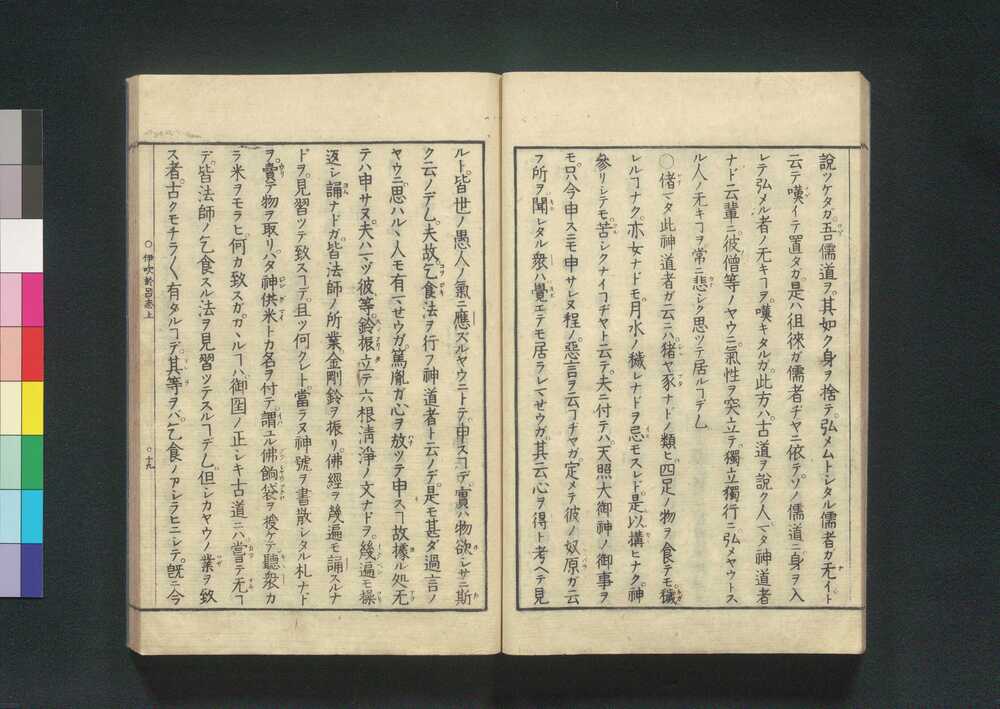 說ツケタガ吾儒道ヲ其如ク身ヲ捨テ弘メムトシタル儒者カ无イト
云テ嘆イテ置タガ是ハ徂徠ガ儒者ヂヤニ依テソノ儒道ニ身ヲ入
レテ弘メル者ノ无キヿヲ嘆キタルガ此方ハ古道ヲ說ク人マタ神道者
ナドヽ云輩ニ彼僧等ノヤウニ氣性ヲ突立テ獨立獨行ニ弘メヤウトス
ル人ノ无キヿヲ常ニ悲シク思ツテ居ルヿデム
〇偖マタ此神道者ガ云ニハ猪ヤ豕ナドノ類ヒ四足ノ物ヲ食テモ穢
レルヿナク亦女ナドモ月水ノ穢レナドヲ忌モスレド是以構ヒナク神
參リシテモ苦シクナイヿヂヤト云デ夫ニ付テハ天照大御神ノ御事ヲ
モ只今申スニモ申サレヌ程ノ惡言ヲ云ヿヂヤガ定メテ彼ノ奴原ガ云
フ所ヲ聞レタル衆ハ覺エテモ居ラレマセウガ其云心ヲ得ト考ヘテ見
ルト皆世ノ愚人ノ氣ニ應ズルヤウニトテ申スヿデ實ハ物欲シサニ斯
ク云ノデム夫故乞食法ヲ行フ神道者ト云ノデ是モ甚ダ過言ノ
ヤウニ思ハルヽ人モ有マセウガ篤胤ガ心ヲ放ツテ申スヿ故據ル処无
テハ申サヌ夫ハマヅ彼等鈴振立テ六根清淨ノ文ナドヲ幾遍モ操
返シ誦ナドガ皆法師ノ所業金剛鈴ヲ振リ佛經ヲ幾遍モ誦スルナ
ドヲ見習ツテ致スヿデ且ツ何クレト當ラヌ神號ヲ書散シタル札ナド
ヲ賣テ物ヲ取リハタ神供米トカ名ヲ付テ謂ユル佛餉袋ヲ授ケテ聽衆カ
ラ米ヲモラヒ何カ致スガカヽルヿハ御国ノ正シキ古道ニハ嘗テ无ヿ
デ皆法師ノ乞食スル法ヲ見習ツテスルヿデム但シカヤウノ業ヲ致
ス者古クモチラ〱有タルヿデ其等ヲバ乞食ノアシラヒニシテ既ニ今
〇伊吹於呂志上
〇十九